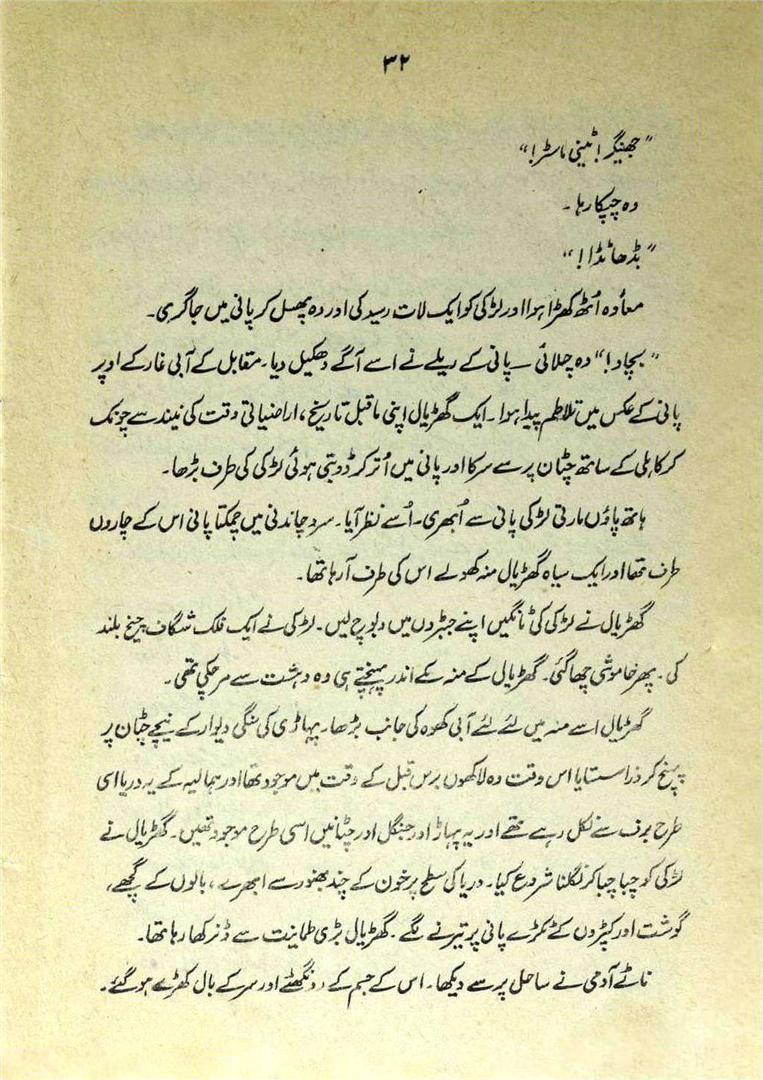 ۳۲
"جھینگر! ٹینی ماسٹر!"
وہ چپکا رہا۔
"بڈھا ٹڈا!"
معاً وہ اُٹھ کھڑا ہوا اور لڑکی کو ایک لات رسید کی اور وہ پھسل کر پانی میں جاگری۔
"بچاو!" وہ چلائی ـــ پانی کے ریلے نے اسے آگے دھکیل دیا۔ مقابل کے آبی غار کے اوپر
پانی کے عکس میں تلاطم پیدا ہوا۔ ایک گھڑیال اپنی ماقبل تاریخ، اراضیاتی وقت کی نیند سے چونک
کر کاہلی کے ساتھ چٹان پر سے سرکا اور پانی میں اُتر کر ڈوبتی ہوئی لڑکی کی طرف بڑھا۔
ہاتھ پاؤں مارتی لڑکی پانی سے اُبھری۔ اُسے نظر آیا۔ سرد چاندنی میں چمکتا پانی اس کے چاروں
طرف تھا اور ایک سیاہ گھڑیال منہ کھولے اس کی طرف آرہا تھا۔
گھڑیال نے لڑکی کی ٹانگیں اپنے جبڑوں میں دبوچ لیں۔ لڑکی نے ایک فلک شگاف چیخ بلند
کی۔ پھر خاموشی چھاگئی۔ گھڑیالی کے منہ کے اندر پہنچتے ہی وہ دہشت سے مرچکی تھی۔
گھڑیال اسے منہ میں لئے لئے آبی کھوہ کی جانب بڑھا۔ پہاڑی کی ننگی دیوار کے نیچے چٹان پر
پہنچ کر ذرا سستایا اس وقت وہ لاکھوں برس قبل کے وقت میں موجود تھا اور ہمالیہ کے یہ دریا اسی
طرح برف سے نکل رہے تھے اور یہ پہاڑ اور جنگل اور چٹانیں اسی طرح موجود تھیں۔ گھڑیال نے
لڑکی کو چبا چبا کر نگلنا شروع کیا۔ دریا کی سطح پر خون کے چند بھنور سے ابھرے، بالوں کے گچھے،
گوشت اور کپڑوں کے ٹکڑے پانی پر تیرنے لگے۔ گھڑیال بڑی طمانیت سے ڈنر کھا رہا تھا۔
ناٹے آدمی نے ساحل پر سے دیکھا۔ اس کے جسم کے رونگھٹے اور سر کے بال کھڑے ہوگئے۔